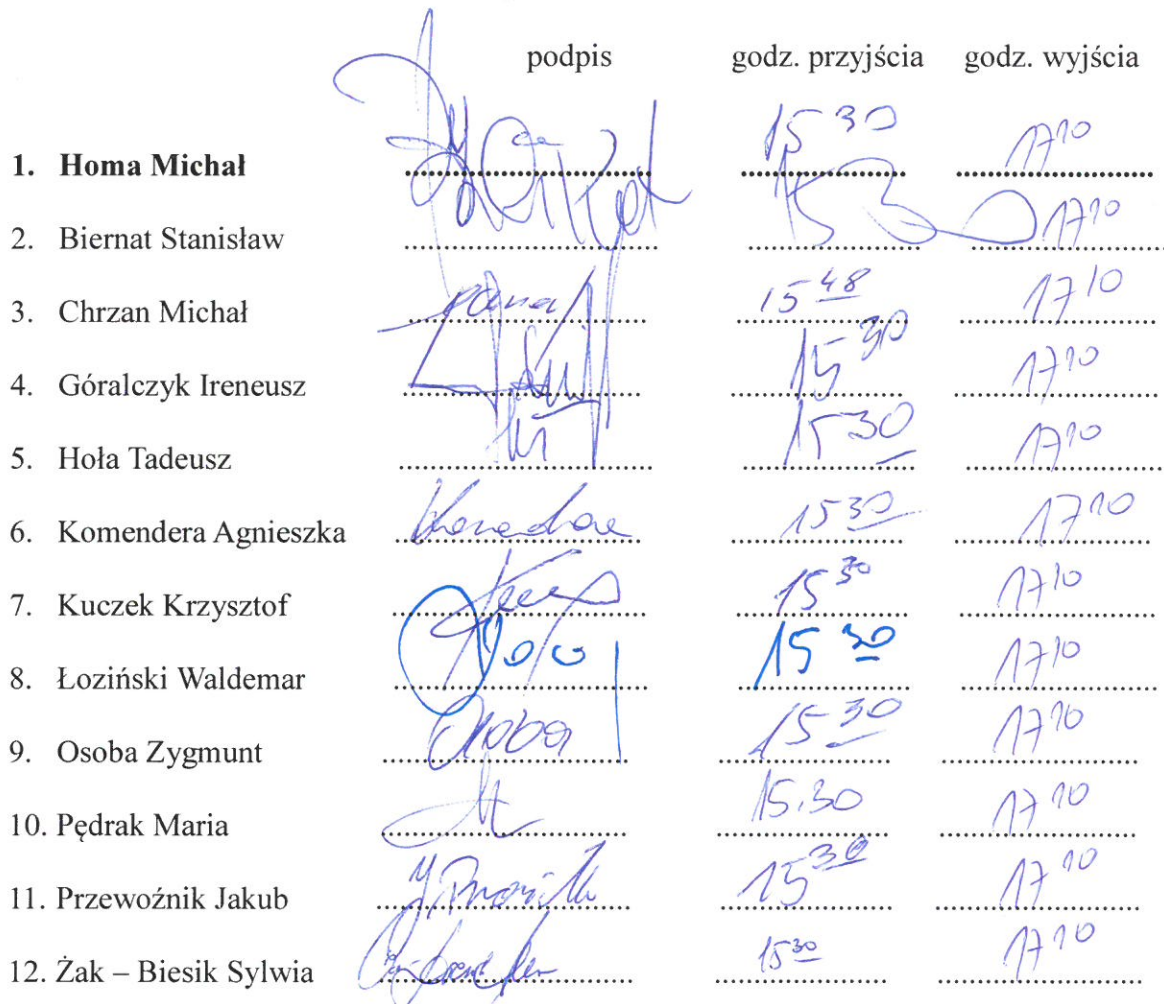 podpis godz. przyjścia godz. wyjścia
1. Homa Michał 15 30 17 10
2. Biernat Stanisław 15 30 17 10
3. Chrzan Michał 15 48 17 10
4. Góralczyk Ireneusz 15 30 17 10
5. Hoła Tadeusz 15 30 17 10
6. Komendera Agnieszka 15 30 17 10
7. Kuczek Krzysztof 15 30 17 10
8. Łoziński Waldemar 15 30 17 10
9. Osoba Zygmunt Osoba 15 30 17 10
10. Pędrak Maria 15.30 17 10
11. Przewoźnik Jakub 15 30 17 10
12. Żak – Biesik Sylwia 15 30 17 10